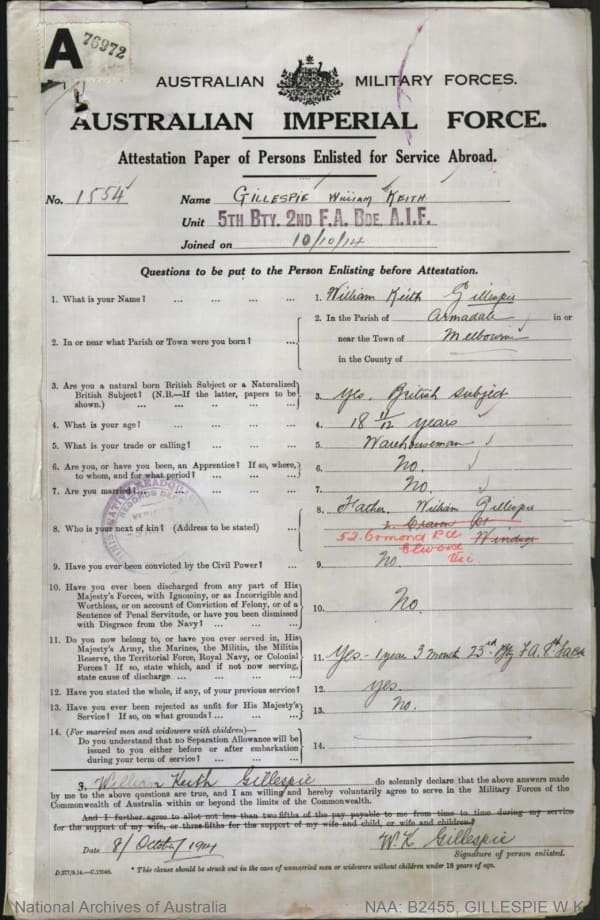 A 76972
AUSTRALIAN MILITARY FORCES.
AUSTRALIAN IMPERIAL FORCE.
Attestation Paper of Persons Enlisted for Service Abroad.
No. 1554 Name GILLESPIE William KEITH
Unit 5TH BTY. 2ND F.A. BDE. A.I.F.
Joined on 10/10/14
Questions to be put to the Person Enlisting before Attestation.
1. What is your Name? ... ... ... ... 1. William Keith Gillespie
2. In or near what Parish or Town were you born? ... 2. In the Parish of Armadale in or
near the Town of Melbourne
in the County of
3. Are you a natural born British Subject or a Naturalized
British Subject? (N.B.—If the latter, papers to be
shown.) ... ... ... ... ... 3. Yes. British Subject
4. What is your age? ... ... ... ... 4. 18 11/12 years
5. What is your trade or calling? ... ... ... 5. Warehouseman
6. Are you, or have you been, an Apprentice? If so, where,
to whom, and for what period? ... ... ... 6. No.
7. Are you married? ... ... ... ... 7. No.
8. Who is your next of kin? (Address to be stated) ... 8. Father, William Gillespie
Windsor
52. Ormond Rd
Elwood
Vic
9. Have you ever been convicted by the Civil Power? ... 9. No.
10. Have you ever been discharged from any part of His
Majesty's Forces, with Ignominy, or as Incorrigible and
Worthless, or on account of Conviction of Felony, or of a
Sentence of Penal Servitude, or have you been dismissed
with Disgrace from the Navy? ... ... ... 10. No.
11. Do you now belong to, or have you ever served in, His
Majesty's Army, the Marines, the Militia, the Militia
Reserve, the Territorial Force, Royal Navy, or Colonial
Forces? If so, state which, and if not now serving,
state cause of discharge ... ... ... ... 11. Yes - 1 year 3 month 23rd Bty F.A. 8th
12. Have you stated the whole, if any, of your previous service? 12. Yes.
13. Have you ever been rejected as unfit for His Majesty's
Service? If so, on what grounds? ... ... ... 13. No.
14. (For married men and widowers with children)—
Do you understand that no Separation Allowance will be
issued to you either before or after embarkation
during your term of service? ... ... ... 14.
I, William Keith Gillespie do solemnly declare that the above answers made
by me to the above questions are true, and I am willing and hereby voluntarily agree to serve in the Military Forces of the
Commonwealth of Australia within or beyond the limits of the Commonwealth.
And I further agree to allot not less than two-fifths of the pay payable to me from time to time during my service
for the support of my wife, or three-fifths for the support of my wife and child, or wife and children.*
Date 8/October/1914 W. K. Gillespie
Signature of person enlisted.
D.377/9.14.—C.12040. * This clause should be struck out in the case of unmarried men or widowers without children under 18 years of age.
National Archives of Australia NAA: B2455, GILLESPIE W K